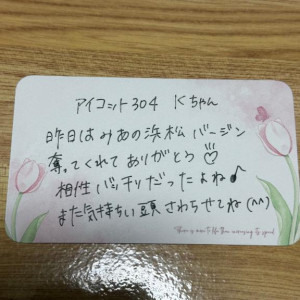 アイコット304 Kちゃん
昨日はみあの浜松バージン
奪ってくれてありがとう♡
相性バッチリだったよね♪
また気持ちい頭さわらせてね(^^)
There is more to life than increasing its speed